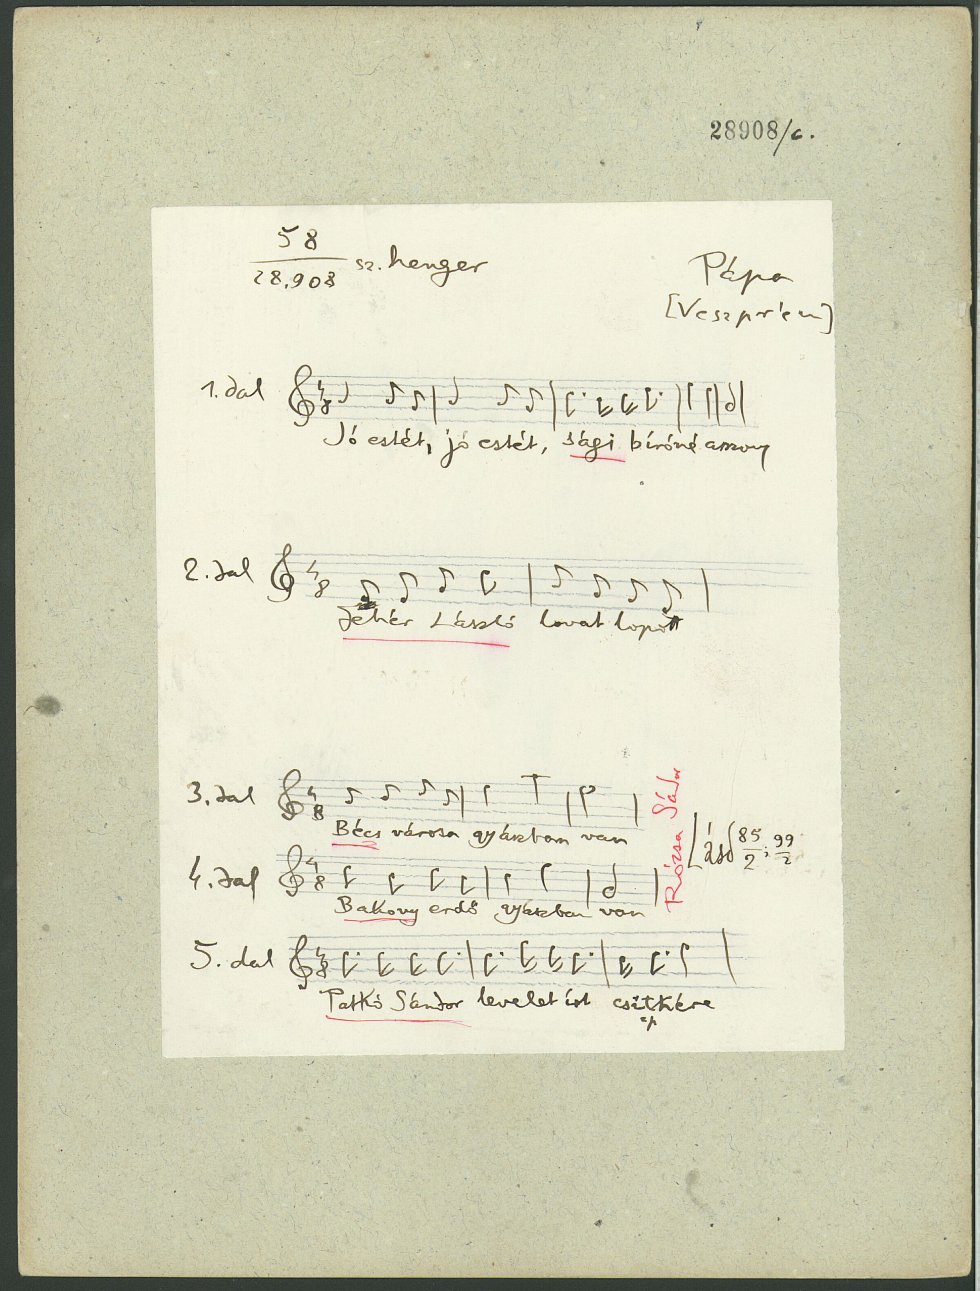 28908/c.
58
28.908 sz. henger
Pápa
[Veszprém]
1. dal
Jó estét, jó estét, sági bíróné asszony
2. dal
Fehér László lovat lopott
3. dal
Bécs városa gyászban van
4. dal
Bakony erdő gyászban van
Rózsa Sándor
Lásd 85/2; 99/2
5. dal
Patkó Sándor levelet írt